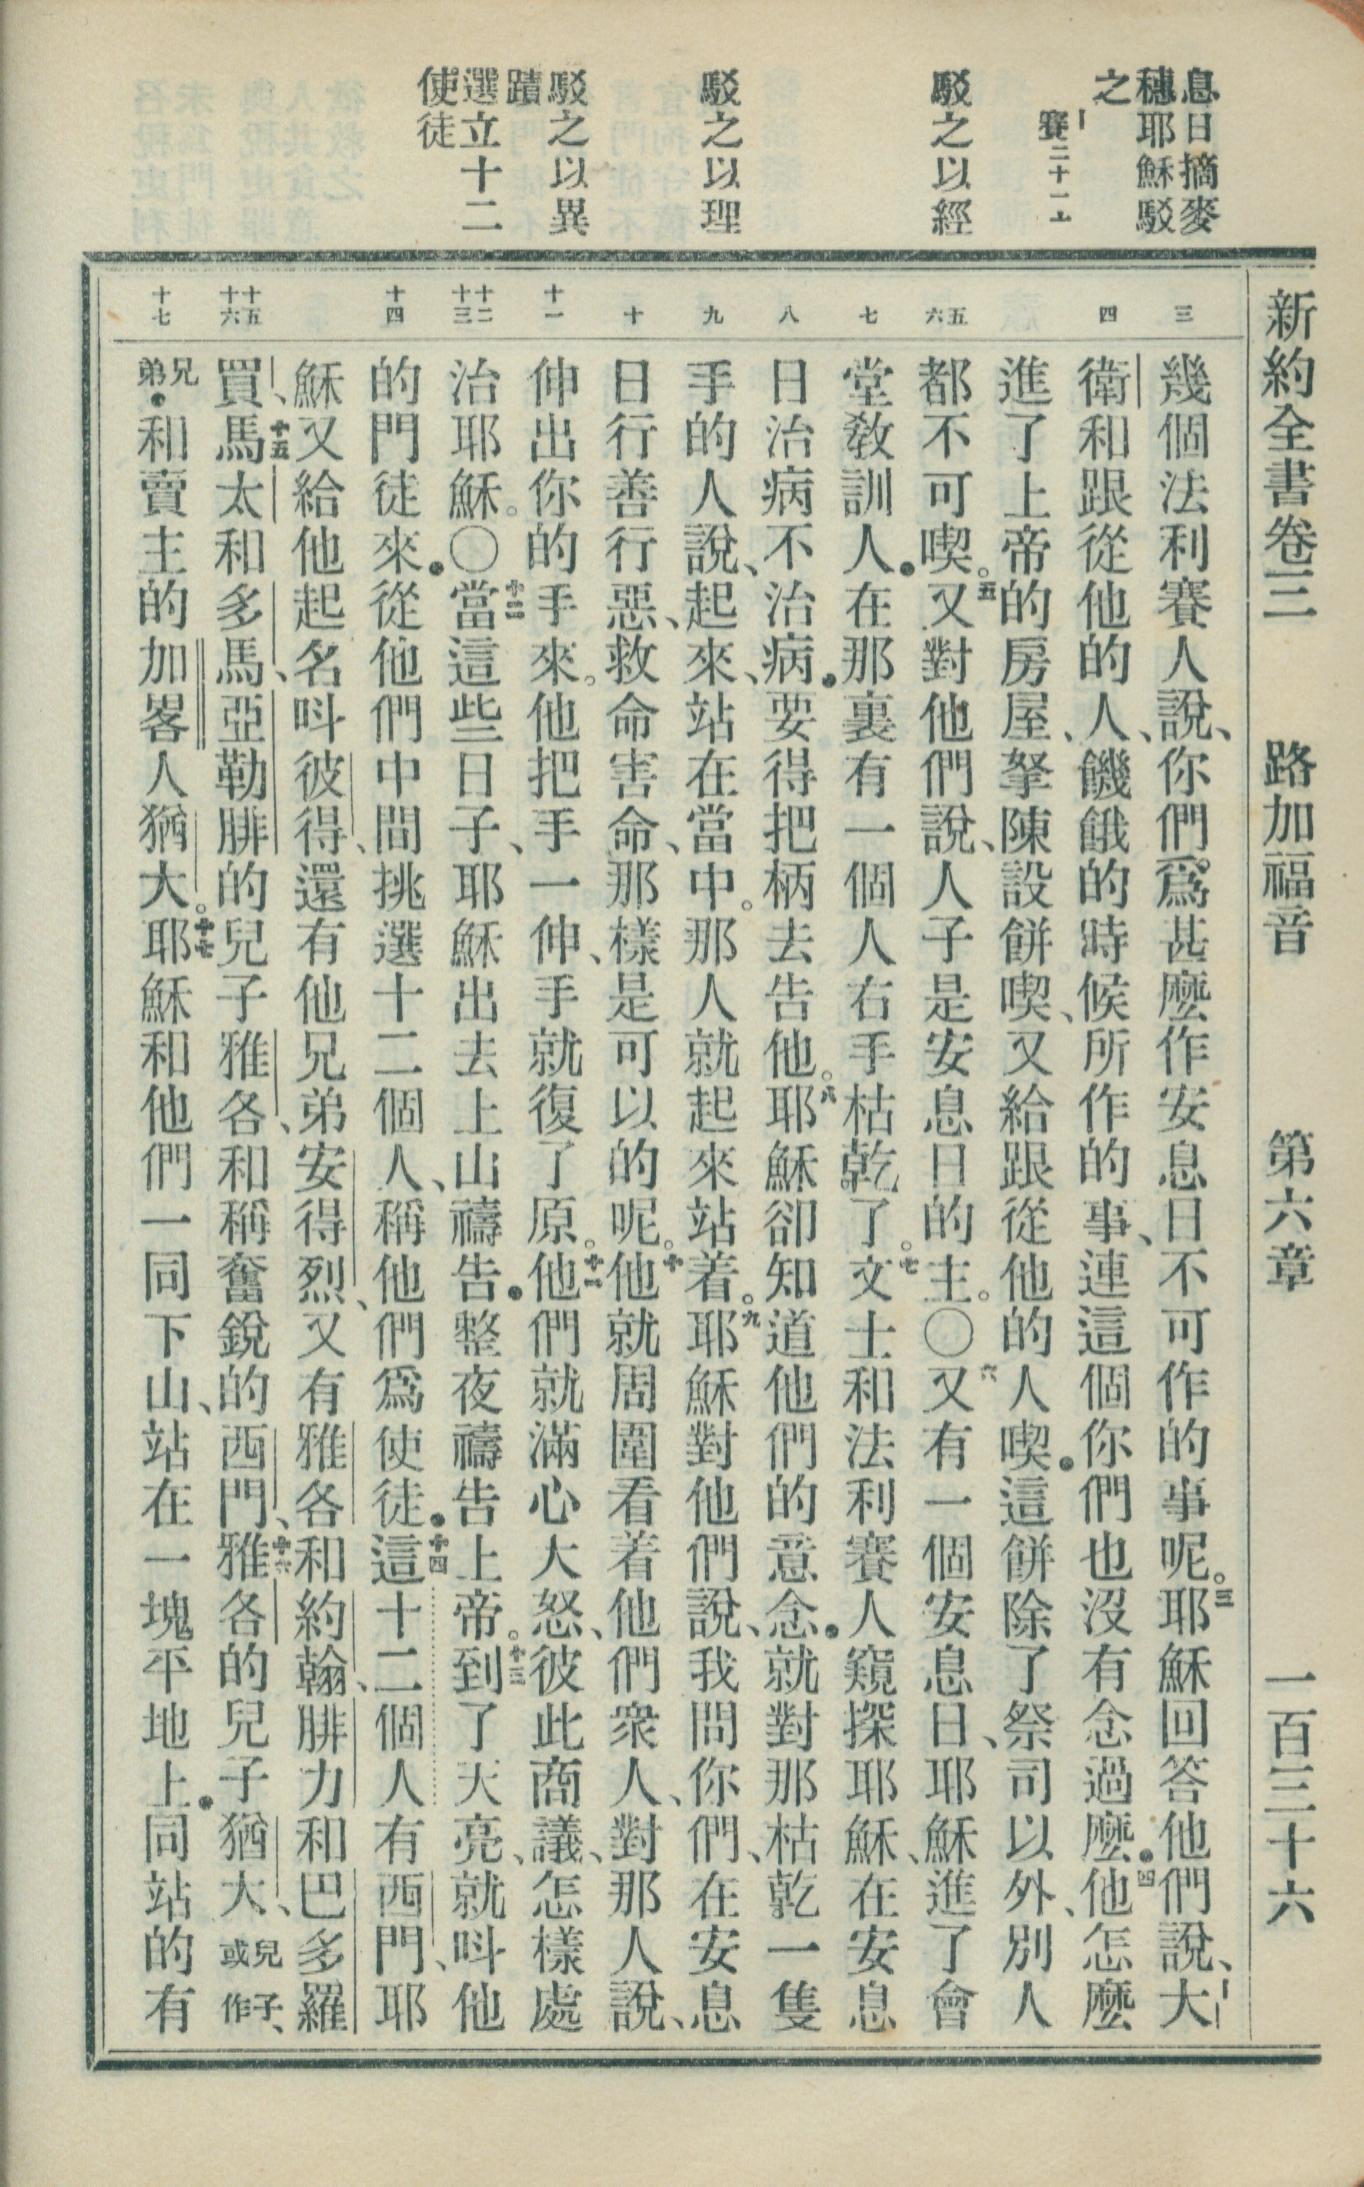 新約全書卷三 路加福音 第六章 一百三十六
息日摘麥
穗耶穌駁
之
駁之以經
駁之以理
駁之以異
蹟
選立十二
使徒
三
四
五
六
七
八
九
十
十一
十二
十三
十四
十五
十六
十七
幾個法利賽人說、你們爲甚麼作安息日不可作的事呢。三耶穌回答他們說、大
衛和跟從他的人、饑餓的時候所作的事、連這個你們也沒有念過麼。四他怎麼
進了上帝的房屋、拏陳設餅喫、又給跟從他的人喫。這餅除了祭司以外、別人
都不可喫。五又對他們說、人子是安息日的主。〇六又有一個安息日、耶穌進了會
堂教訓人。在那裏有一個人右手枯乾了。七文士和法利賽人窺探耶穌、在安息
日治病不治病。要得把柄去告他。八耶穌卻知道他們的意念。就對那枯乾一隻
手的人說、起來、站在當中。那人就起來站着。九耶穌對他們說、我問你們、在安息
日行善行惡、救命害命、那樣是可以的呢。十他就周圍看着他們衆人、對那人說、
伸出你的手來。他把手一伸、手就復了原。十一他們就滿心大怒、彼此商議、怎樣處
治耶穌。〇十二當這些日子、耶穌出去上山禱告。整夜禱告上帝。十三到了天亮、就呌他
的門徒來。從他們中間挑選十二個人、稱他們爲使徒。十四這十二個人有西門、耶
穌又給他起名呌彼得、還有他兄弟安得烈、又有雅各和約翰、腓力和巴多羅
買、十五馬太和多馬、亞勒腓的兒子雅各、和稱奮銳的西門、十六雅各的兒子猶大、兒子、或作
兄弟。和賣主的加畧人猶大。十七耶穌和他們一同下山、站在一塊平地上。同站的有